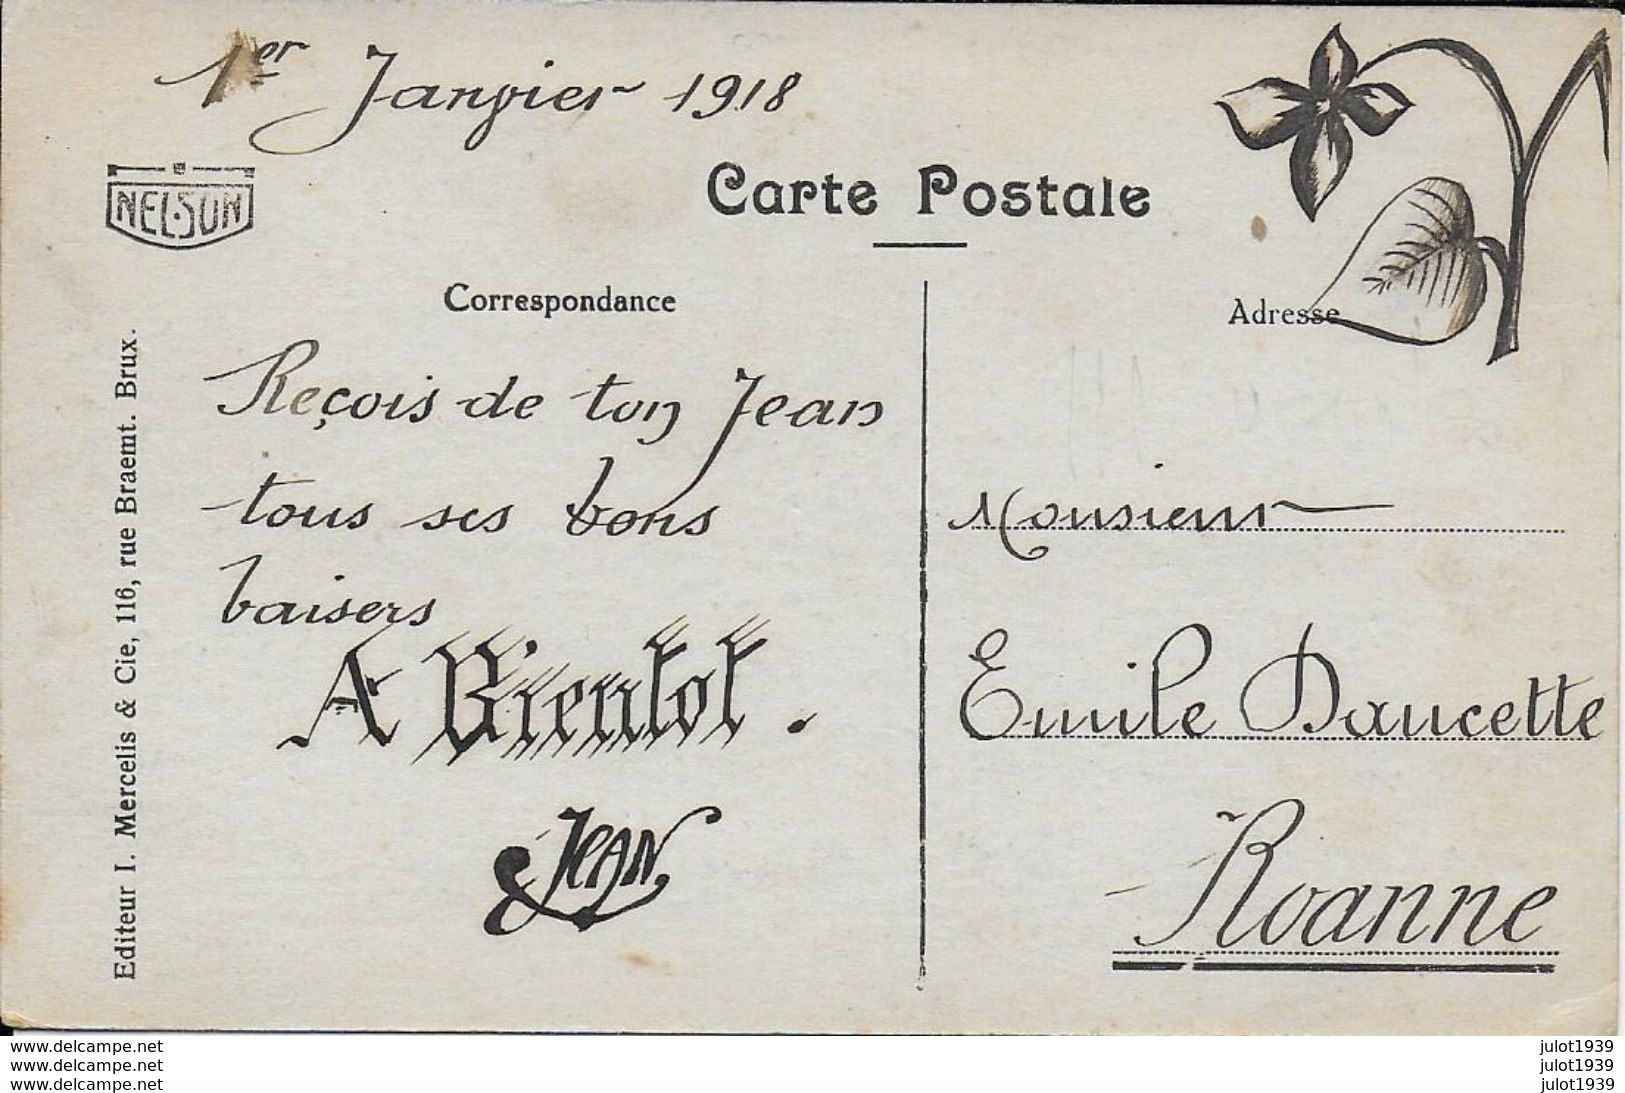 1er Janvier 1918
NELSON
Carte Postale
Correspondance
Adresse
Reçois de ton Jean
tous ses bons
baisers
A Bientot.
Jean
Monsieur
Emile Daucette
Roanne
Editeur I. Mercelis & Cie, 116, rue Braemt. Brux.
www.delcampe.net
www.delcampe.net
www.delcampe.net
julot1939
julot1939
julot1939